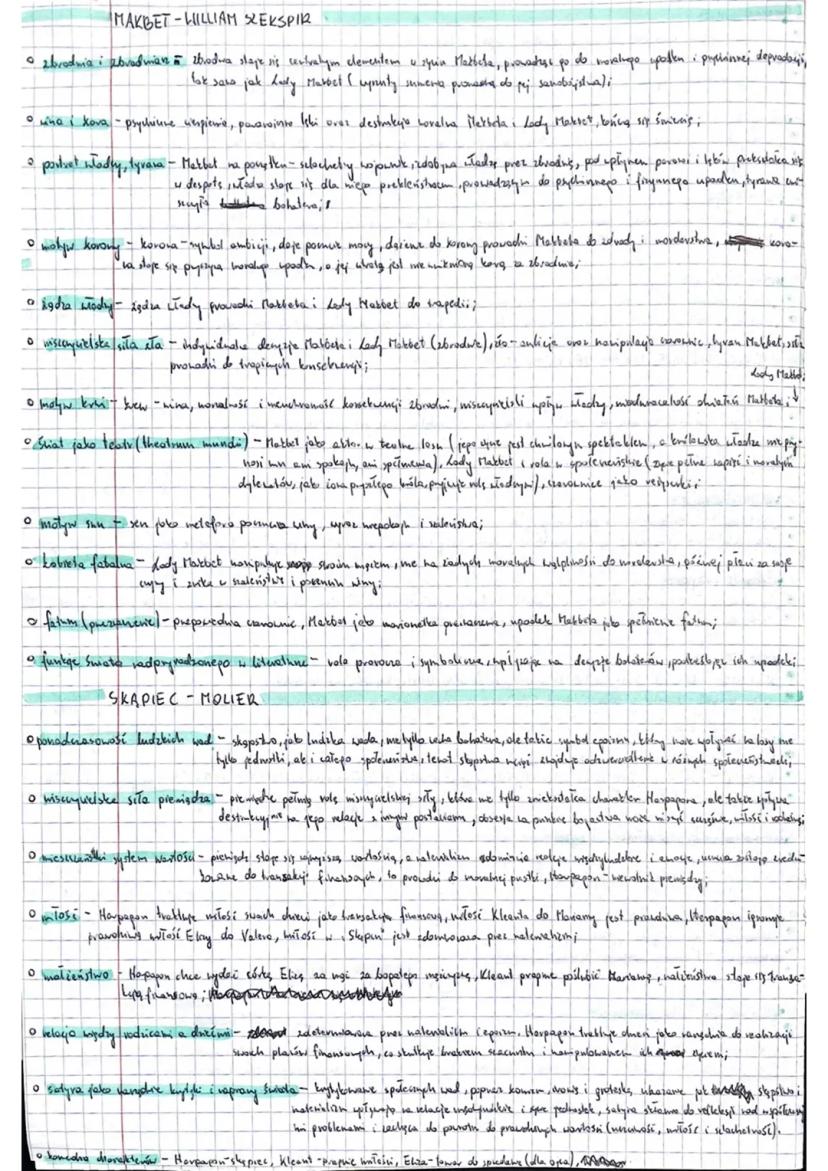 MAKBET - WILLIAM SZEKSPIR
zbrodnia i zbrodniarz - zbrodnia staje się centralnym elementem w życiu Makbeta, prowadząc go do moralnego upadku i psychicznej deprawacji,
tak samo jak Lady Makbet (wyrzuty sumienia prowadzą do jej samobójstwa);
wina i kara - psychiczne cierpienie, paranoiczne lęki oraz destrukcja moralna Makbeta i Lady Makbet, kończą się śmiercią;
portret władcy, tyrana - Makbet na początku - szlachetny wojownik, zdobywa władzę przez zbrodnię, pod wpływem paranoi i lęków przekształca się
w despotę, władza staje się dla niego przekleństwem, prowadzącym do psychicznego i fizycznego upadku, tyrania
bohatera;
motyw korony - korona - symbol ambicji, daje poczucie mocy, dążenie do korony prowadzi Makbeta do zdrady i morderstwa, koro-
na staje się przyczyną moralnego upadku, a jej utrata jest nieuniknioną karą za zbrodnie;
żądza władzy - żądza władzy prowadzi Makbeta i Lady Makbet do tragedii;
niszczycielska siła zła - indywidualne decyzje Makbeta i Lady Makbet (zbrodnie), zło - ambicje oraz manipulacja czarownic, tyran Makbet,
prowadzi do tragicznych konsekwencji;
Lady Makbet;
motyw krwi - krew - wina, moralność i nieuchronność konsekwencji zbrodni, niszczycielski wpływ władzy, nieodwracalność działań Makbeta i
Świat jako teatr (theatrum mundi) - Makbet jako aktor w teatrze losu (jego życie jest chwilowym spektaklem, a królewska władza nie przy-
nosi mu ani spokoju, ani spełnienia), Lady Makbet i rola w społeczeństwie (życie pełne napięć i moralnych
dylematów, jako żona przyszłego króla, przyjmuje rolę władczyni), czarownice jako reżyserki;
motyw snu - sen jako metafora poczucia winy, wyraz niepokoju i szaleństwa;
kobieta fatalna - Lady Makbet manipuluje swoim mężem, nie ma żadnych moralnych wątpliwości do morderstwa, później płaci za swoje
czyny i znika w szaleństwie i poczuciu winy;
fatum (przeznaczenie) - przepowiednia czarownic, Makbet jako marionetka przeznaczenia, upadek Makbeta jako spełnienie fatum;
funkcje świata nadprzyrodzonego w literaturze - rola prorocza i symboliczna, wpływają na decyzje bohaterów, podkreślając ich upadek;
SKĄPIEC - MOLIER
ponadczasowość ludzkich wad - skąpstwo, jako ludzka wada, nie tylko cecha bohatera, ale także symbol egoizmu, który może wpływać na losy nie
tylko jednostki, ale i całego społeczeństwa, temat skąpstwa wciąż znajduje odzwierciedlenie w różnych społeczeństwach;
niszczycielska siła pieniądza - pieniądze pełnią rolę niszczycielskiej siły, która nie tylko zniekształca charakter Harpagona, ale także wpływa
destrukcyjnie na jego relacje z innymi postaciami, obsesja na punkcie bogactwa może niszyć szczęście, miłość i rodzinę;
mieszczański system wartości - pieniądz staje się najwyższą wartością, a materializm zdominia relacje międzyludzkie i emocje, uczucia zostają zredu-
kowane do transakcji finansowych, to prowadzi do moralnej pustki, Harpagon - niewolnik pieniędzy;
miłość - Harpagon traktuje miłość swoich dzieci jako transakcję finansową, miłość Kleanta do Marianny jest prawdziwa, Harpagon ignoruje
prawdziwą miłość Elizy do Valera, miłość w "Skąpcu" jest zdominowana przez materializm;
małżeństwo - Harpagon chce wydać córkę Elizę za mąż za bogatego mężczyznę, Kleant pragnie poślubić Mariannę, małżeństwo staje się transak-
cją finansową;
relacja między rodzicami a dziećmi - zdeterminowana przez materializm i egoizm. Harpagon traktuje dzieci jako narzędzia do realizacji
swoich planów finansowych, co skutkuje brakiem szacunku i manipulowaniem ich życiem;
satyra jako narzędzie krytyki i naprawy świata - krytykowanie społecznych wad, poprzez komizm, ironię i groteskę, ukazanie jak skąpstwo i
materializm wpływają na relacje międzyludzkie i życie jednostek, satyra skłania do refleksji nad współczesny
mi problemami i zachęca do powrotu do prawdziwych wartości (uczciwość, miłość i szlachetność).
komedia charakterów - Harpagon - skąpiec, Kleant - pragnie miłości, Eliza - towar do sprzedania (dla ojca),